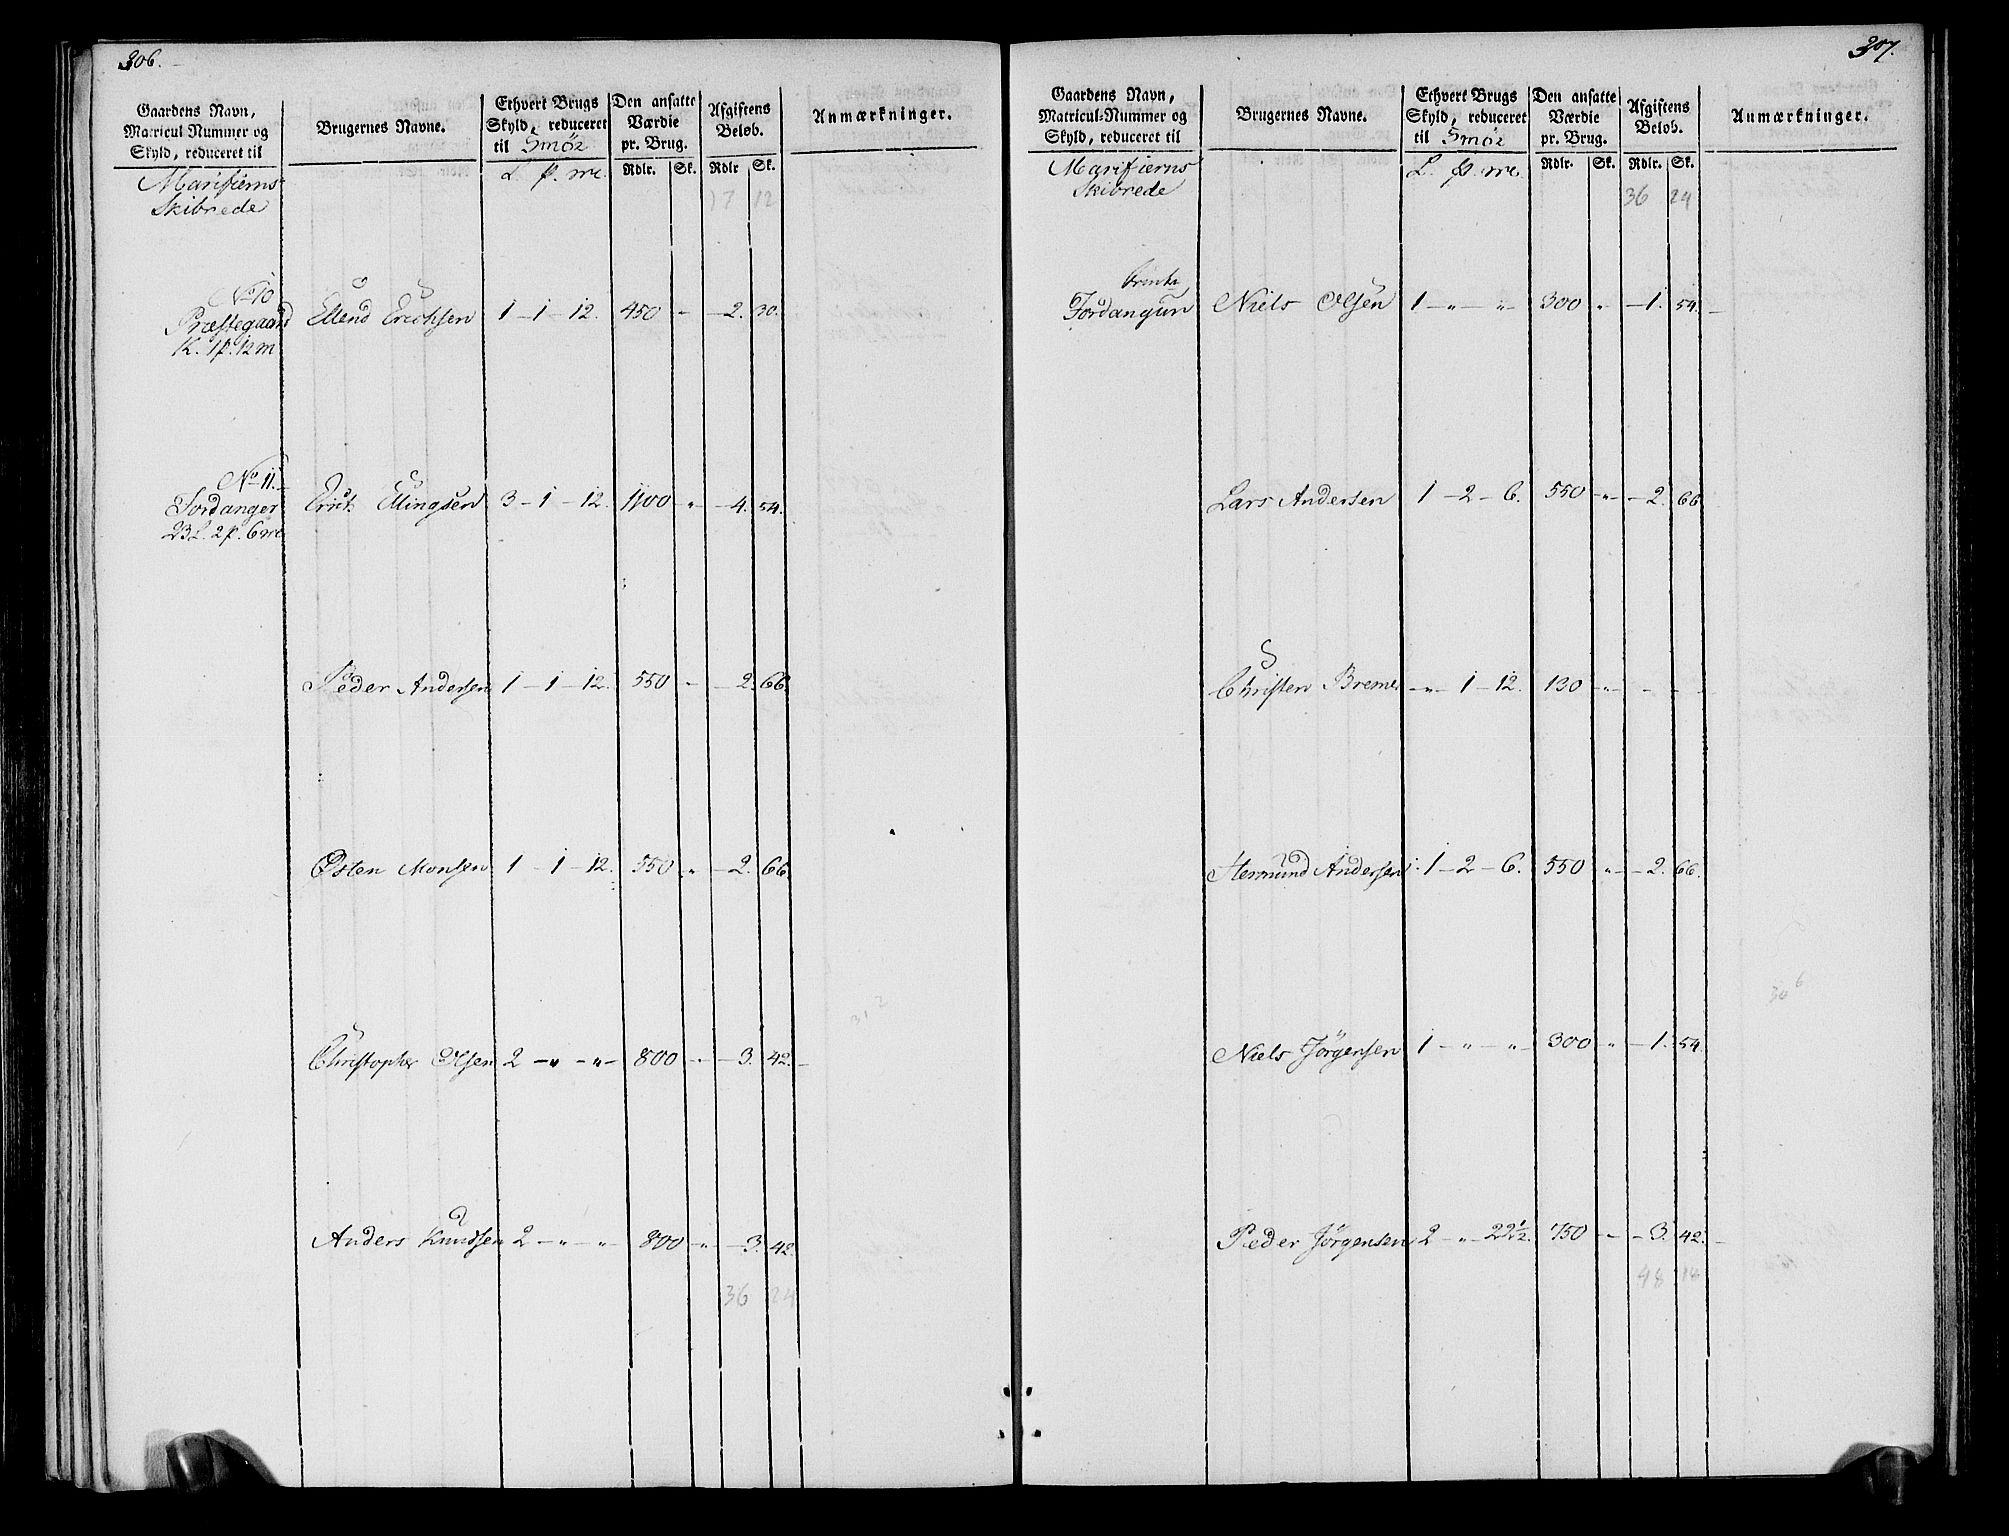 306.
Gaardens Navn,
Matricul Nummer og
Skyld, reduceret til
Brugernes Navne.
Ethvert Brugs
Skyld, reduceret
til Smör
Den ansatte
Værdie
pr. Brug.
Afgiftens
Beløb.
Anmærkninger.
L. p. mr.
Rdlr. Sk. Rdlr Sk.
Marifierns
Skibrede
17 12
No 10
Præstegaard
K. 1p. 12m
Ellend Erichsen 1 - 1 - 12. 450 - - 2. 30.
No 11.
Sordanger
23 L. 2p. 6 mr
Erich Ellingsen 3 - 1 - 12. 1100 " - 4. 54.
Peder Andersen 1 - 1 - 12. 550 - - 2. 66.
Østen Monsen 1 - 1 - 12. 550 " - 2. 66.
Christopher Olsen 2 - " - " - 800 - - 3. 42. -
Anders Knudsen 2 - " - " - 800 " - 3. 42.
36 24
307.
Gaardens Navn,
Matricul-Nummer og
Skyld, reduceret til
Brugernes Navne.
Ethvert Brugs
Skyld, reduceret
til Smör
Den ansatte
Værdie
pr. Brug.
Afgiftens
Beløb.
Anmærkninger.
L. p. mr.
Rdlr. Sk. Rdlr. Sk.
Marifierns
Skibrede
36 24
Niels Olsen 1 - " - " - 300 " - 1. 54. -
Lars Andersen 1 - 2 - 6. 550 - " - 2. 66
Christen Bremer - " - 1 - 12. 130 - " - - -
Hermund Andersen 1 - 2 - 6. 550 - " - 2. 66.
30 6
31 2
Niels Jörgensen 1 - " - " - 300 " - 1. 54.
Peder Jörgensen 2 - " - 22 1/2. 750 - - 3. 42. -
48 18